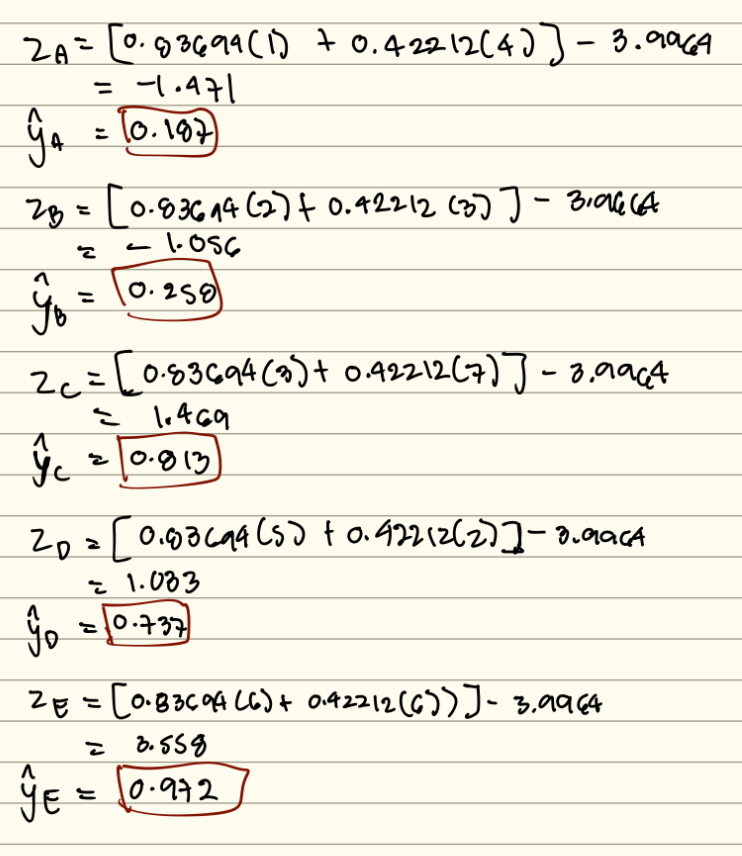 z_A = [0.83694(1) + 0.42212(4)] - 3.9964
= -1.471
ŷ_A = 0.187
z_B = [0.83694(2) + 0.42212(3)] - 3.9964
= -1.056
ŷ_B = 0.258
z_C = [0.83694(3) + 0.42212(7)] - 3.9964
= 1.469
ŷ_C = 0.813
z_D = [0.83694(5) + 0.42212(2)] - 3.9964
= 1.033
ŷ_D = 0.737
z_E = [0.83694(6) + 0.42212(6))] - 3.9964
= 3.558
ŷ_E = 0.972